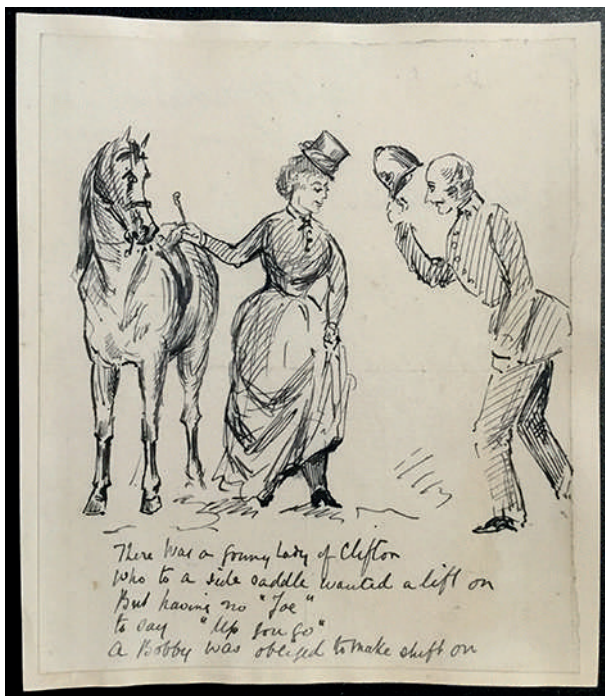 There was a young lady of Clifton
who to a side saddle wanted a lift on
But having no "Joe"
to say "Up you go"
A Bobby was obliged to make shift on